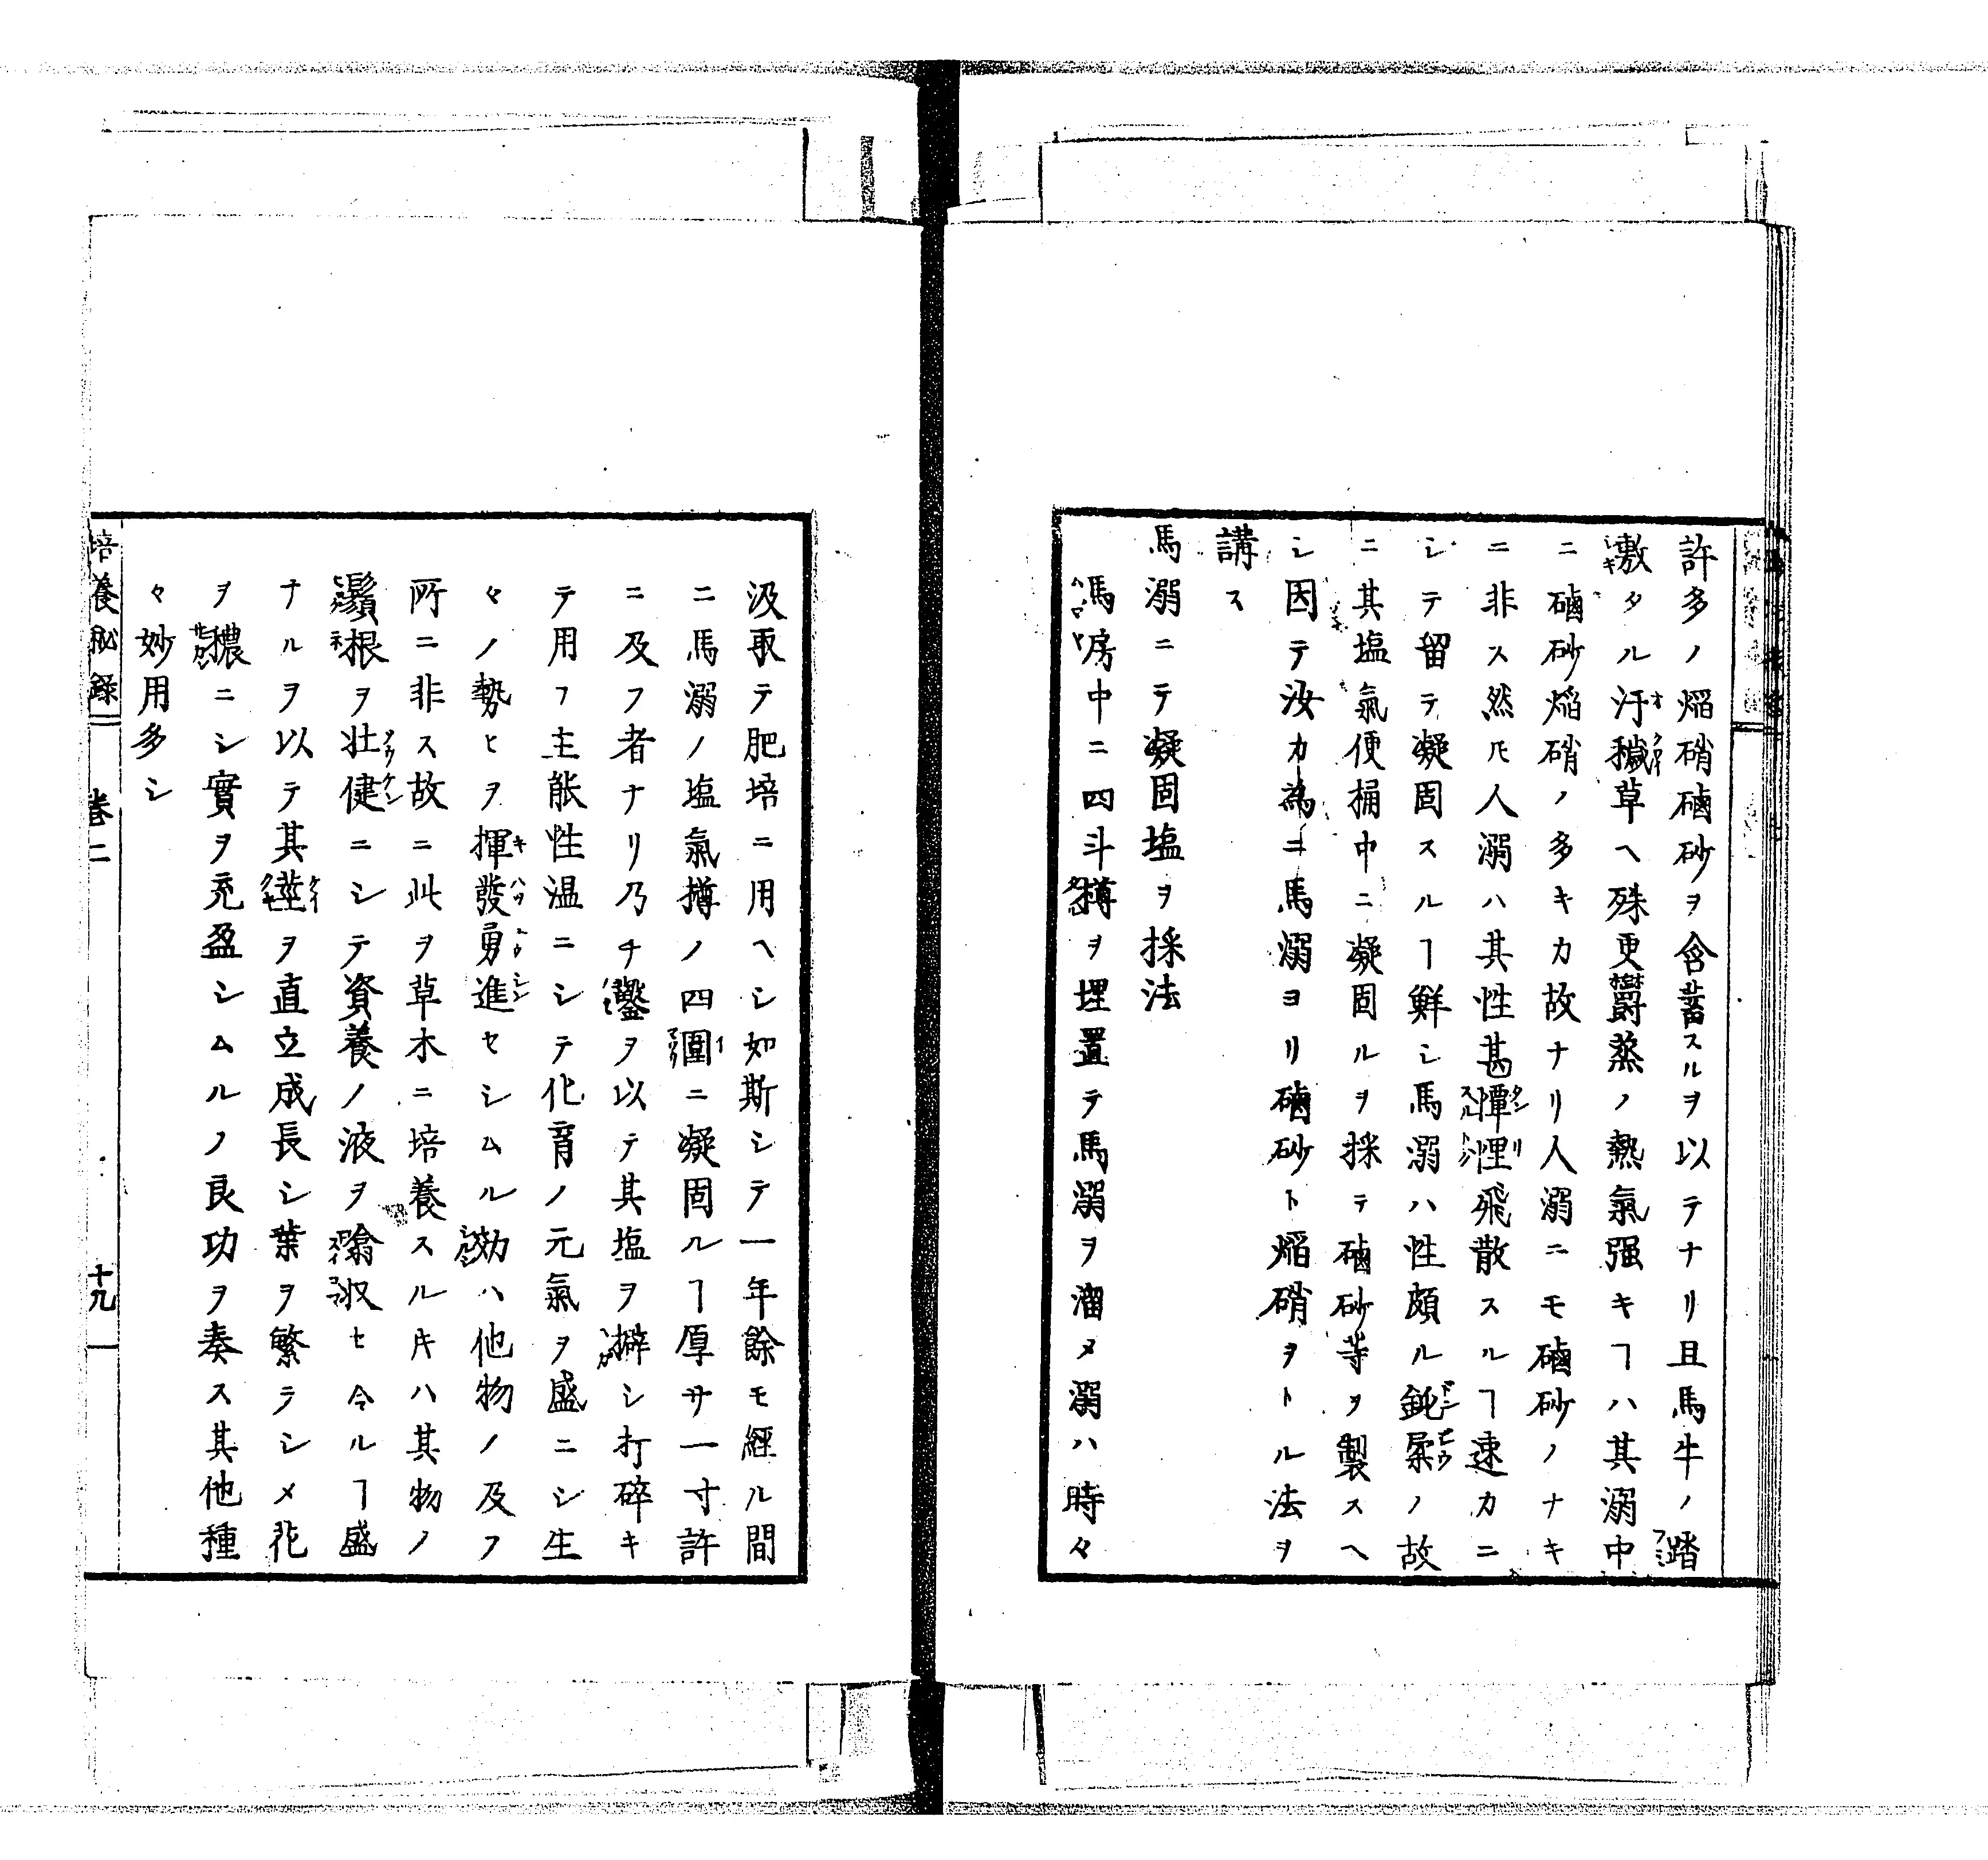 許多ノ熖硝磠砂ヲ含蓄スルヲ以テナリ且馬牛ノ踏
敷タル汙穢草ヘ殊更欝蒸ノ熱氣强キヿハ其溺中
ニ磠砂熖硝ノ多キカ故ナリ人溺ニモ磠砂ノナキ
ニ非ス然𪜈人溺ハ其性甚憚悝飛散スルヿ速カニ
シテ留テ凝固スルヿ鮮シ馬溺ハ性頗ル鈍孱ノ故
ニ其塩氣便桶中ニ凝固ルヲ採テ磠砂等ヲ製スヘ
シ因テ汝カ為ニ馬溺ヨリ磠砂ト熖硝ヲトル法ヲ
講ス
馬溺ニテ凝固塩ヲ採法
馬房中ニ四斗樽ヲ埋置テ馬溺ヲ溜メ溺ハ時々
汲取テ肥培ニ用ヘシ如斯シテ一年餘モ經ル間
ニ馬溺ノ塩氣樽ノ四圍ニ凝固ルヿ厚サ一寸許
ニ及フ者ナリ乃チ鑿ヲ以テ其塩ヲ擗シ打碎キ
テ用フ主能性温ニシテ化育ノ元氣ヲ盛ニシ生
々ノ勢ヒヲ揮發勇進セシムル効ハ他物ノ及フ
所ニ非ス故ニ此ヲ草木ニ培養スル𪜈ハ其物ノ
鬚根ヲ壯健ニシテ資養ノ液ヲ翕收セ令ルヿ盛
ナルヲ以テ其莖ヲ直立成長シ葉ヲ繁ラシメ花
ヲ穠ニシ實ヲ充盈シムルノ良功ヲ奏ス其他種
々妙用多シ
培養秘録 巻二 十九